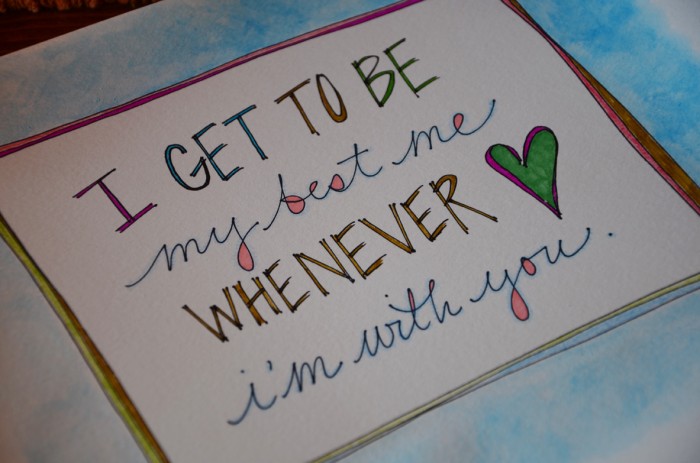 I GET TO BE
my best me
WHENEVER
i'm with you.